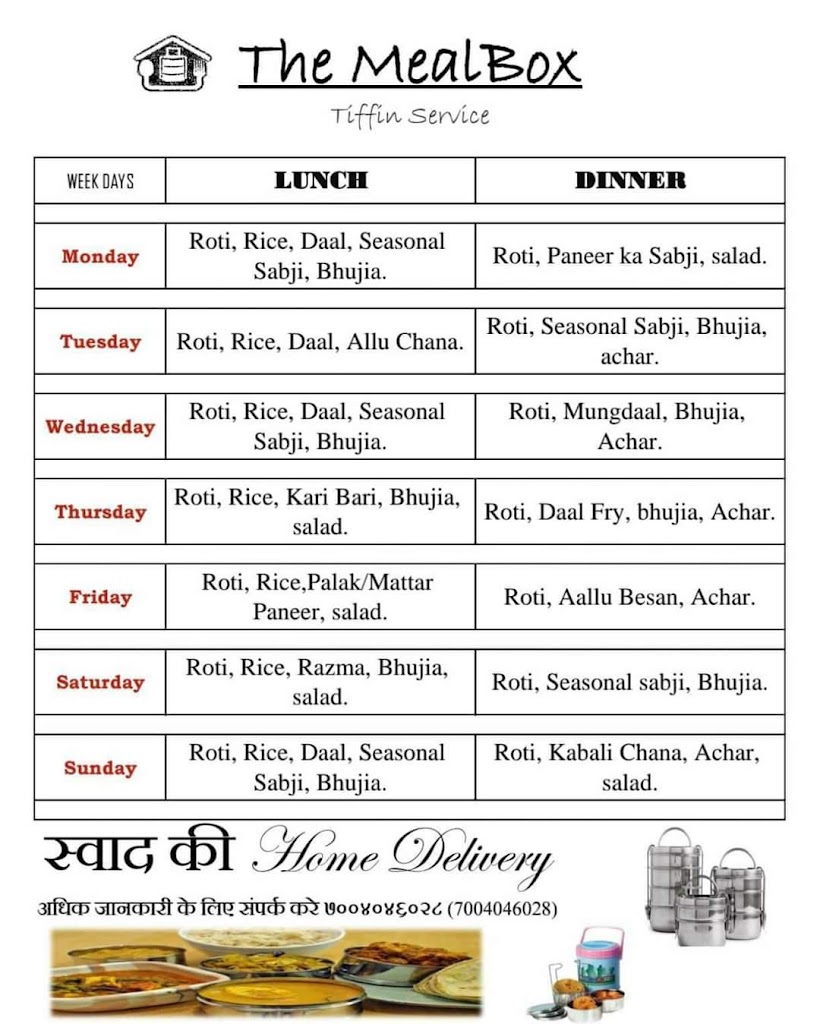 The MealBox
Tiffin Service
WEEK DAYS LUNCH DINNER
Monday Roti, Rice, Daal, Seasonal Sabji, Bhujia. Roti, Paneer ka Sabji, salad.
Tuesday Roti, Rice, Daal, Allu Chana. Roti, Seasonal Sabji, Bhujia, achar.
Wednesday Roti, Rice, Daal, Seasonal Sabji, Bhujia. Roti, Mungdaal, Bhujia, Achar.
Thursday Roti, Rice, Kari Bari, Bhujia, salad. Roti, Daal Fry, bhujia, Achar.
Friday Roti, Rice,Palak/Mattar Paneer, salad. Roti, Aallu Besan, Achar.
Saturday Roti, Rice, Razma, Bhujia, salad. Roti, Seasonal sabji, Bhujia.
Sunday Roti, Rice, Daal, Seasonal Sabji, Bhujia. Roti, Kabali Chana, Achar, salad.
स्वाद की Home Delivery
अधिक जानकारी के लिए संपर्क करे ७००४०४६०२८ (7004046028)